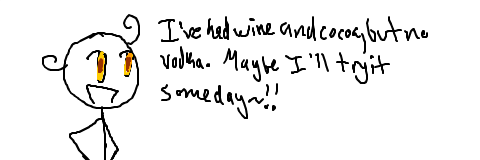 I've had wine and cocoa, but no
vodka. Maybe I'll try it
someday~!!